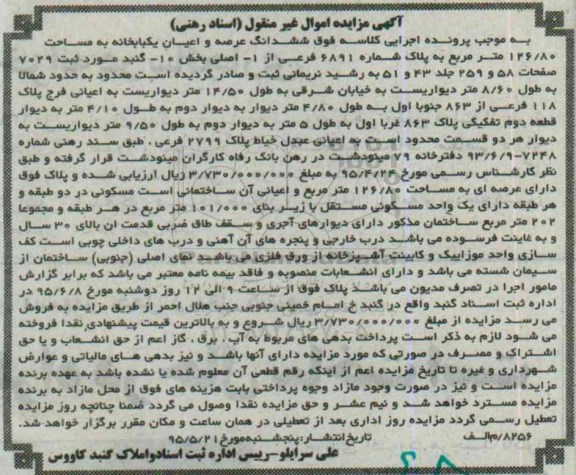 آگهی مزایده اموال غیر منقول (اسناد رهنی)
به موجب پرونده اجرایی کلاسه فوق ششدانگ عرصه و اعیان یکبابخانه به مساحت
۱۲۶/۸۰ متر مربع به پلاک شماره ۶۸۹۱ فرعی از ۱- اصلی بخش ۱۰- گنبد مورد ثبت ۷۰۲۹
صفحات ۵۸ و ۲۵۹ جلد ۴۳ و ۵۱ به رشید نریمانی ثبت و صادر گردیده است محدود به حدود شمالا
به طول ۸/۶۰ متر دیواریست به خیابان شرقی به طول ۱۴/۵۰ متر دیواریست به اعیانی فرج پلاک
۱۱۸ فرعی از ۸۶۳ جنوبا اول به طول ۴/۸۰ متر دیوار به دیوار دوم به طول ۴/۱۰ متر به دیوار
قطعه دوم تفکیکی پلاک ۸۶۳ غربا اول به طول ۵ متر به دیوار دوم به طول ۹/۵۰ متر دیواریست به
دیوار هر دو قسمت محدود است به اعیانی عبدل خیاط پلاک ۲۷۹۹ فرعی ، طبق سند رهنی شماره
۷۲۴۸-۹۳/۶/۹ دفترخانه ۷۹ مینودشت در رهن بانک رفاه کارگران مینودشت قرار گرفته و طبق
نظر کارشناس رسمی مورخ ۹۵/۴/۲۴ به مبلغ ۳/۷۳۰/۰۰۰/۰۰۰ ریال ارزیابی شده و پلاک فوق
دارای عرصه ای به مساحت ۱۲۶/۸۰ متر مربع و اعیانی آن ساختمانی است مسکونی در دو طبقه و
هر طبقه دارای یک واحد مسکونی مستقل با زیر بنای ۱۰۱/۰۰۰ متر مربع در هر طبقه و مجموعا
۲۰۲ متر مربع ساختمان مذکور دارای دیوارهای آجری و سقف طاق ضربی قدمت ان بالای ۳۰ سال
و به غایت فرسوده می باشد درب خارجی و پنجره های آن آهنی و درب های داخلی چوبی است کف
سازی واحد موزاییک و کابینت آشپزخانه از ورق فلزی می باشد نمای اصلی (جنوبی) ساختمان از
سیمان شسته می باشد و دارای انشعابات منصوبه و فاقد بیمه نامه معتبر می باشد که برابر گزارش
مامور اجرا در تصرف مدیون می باشد پلاک فوق از ساعت ۹ الی ۱۲ روز دوشنبه مورخ ۹۵/۶/۸ در
اداره ثبت اسناد گنبد واقع در گنبد خ امام خمینی جنوبی جنب هلال احمر از طریق مزایده به فروش
می رسد مزایده از مبلغ ۳/۷۳۰/۰۰۰/۰۰۰ ریال شروع و به بالاترین قیمت پیشنهادی نقدا فروخته
می شود لازم به ذکر است پرداخت بدهی های مربوط به آب ، برق ، گاز اعم از حق انشعاب و یا حق
اشتراک و مصرف در صورتی که مورد مزایده دارای آنها باشد و نیز بدهی های مالیاتی و عوارض
شهرداری و غیره تا تاریخ مزایده اعم از اینکه رقم قطعی آن معلوم شده یا نشده باشد به عهده برنده
مزایده است و نیز در صورت وجود مازاد وجوه پرداختی بابت هزینه های فوق از محل مازاد به برنده
مزایده مسترد خواهد شد و نیم عشر و حق مزایده نقدا وصول می گردد ضمنا چنانچه روز مزایده
تعطیل رسمی گردد مزایده روز اداری بعد از تعطیلی در همان ساعت و مکان مقرر برگزار خواهد شد.
۸۲۵۶/م الف تاریخ انتشار : پنجشنبه مورخ ۹۵/۵/۲۱
علی سرایلو-رییس اداره ثبت اسناد و املاک گنبد کاووس